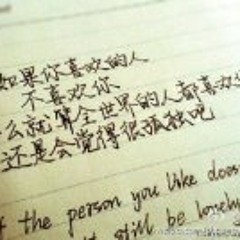 如果你喜欢的人
不喜欢你
么就算全世界的人都喜欢
还是会觉得很孤独吧
the person you like does
still be lonely